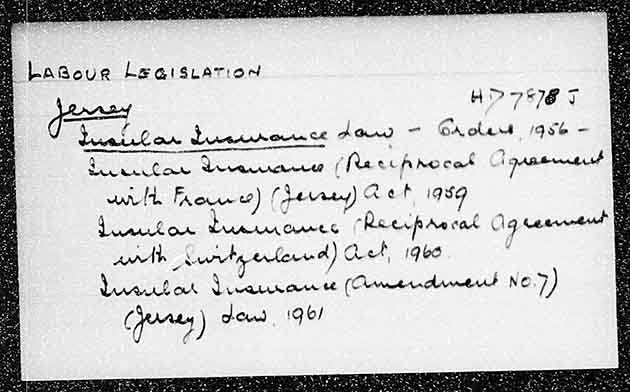 LABOUR LEGISLATION
Jersey HD 7878 J
Insular Insurance Law - Orders, 1956 -
Insular Insurance (Reciprocal Agreement
with France) (Jersey) Act, 1959
Insular Insurance (Reciprocal Agreement
with Switzerland) Act, 1960.
Insular Insurance (Amendment No. 7)
(Jersey) Law, 1961